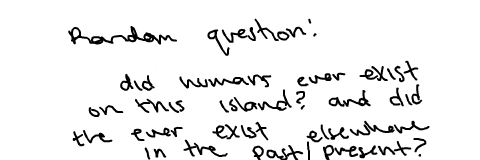 Random question:
did humans ever exist
on this island? and did
the ever exist elsewhere
in the past/present?